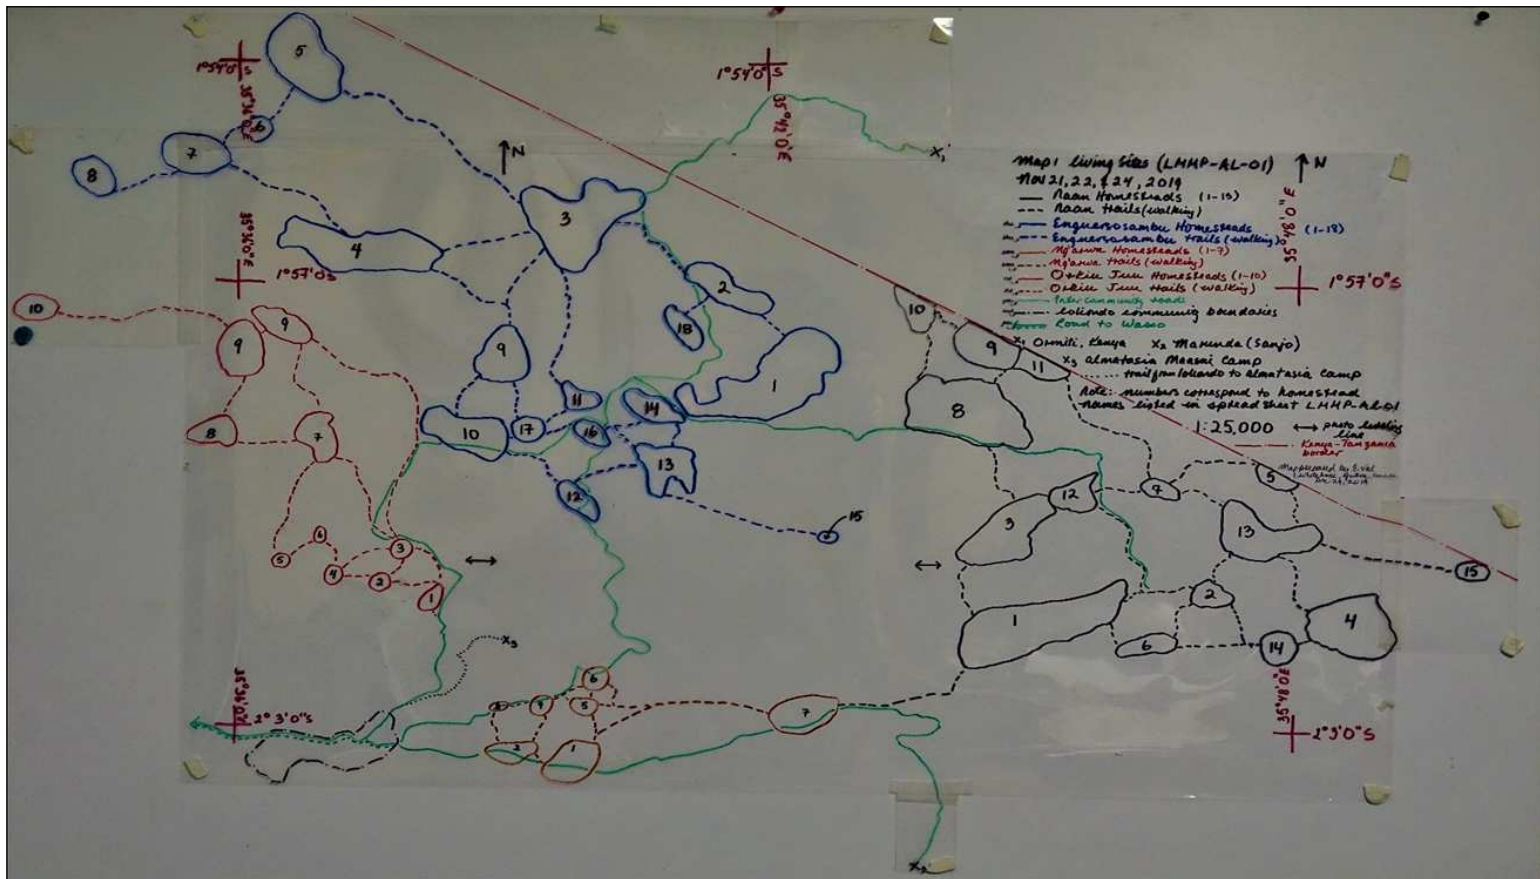 5
1°54'0" S
35°36'0" E
6
7
8
N
3
4
35°36'0" E
1°57'0" S
1°54'0" S
35°42'0" E
X₁
2
18
1
9
11
10
17
16
14
13
12
15
10
9
9
8
7
6
5
4
3
2
1
X₃
35°36'0"
2°3'0"S
6
5
2
1
7
X₂
10
9
11
8
12
3
7
5
13
15
1
2
6
14
4
Map 1 living sites (LMHP-AL-01)
N
Nov 21, 22, & 24, 2019
Naan Homesteads (1-15)
Naan trails (walking)
Enguersosambu Homesteads (1-18)
Enguersosambu trails (walking)
Ng'arwa Homesteads (1-7)
Ng'arwa trails (walking)
Orkiu Juu Homesteads (1-10)
Orkiu Juu trails (walking)
Inter community roads
Loliondo community boundaries
Road to Wasso
X₁ Ormiti, Kenya X₂ Marunda (Sanjo)
X₃ Almatasia Maasai Camp
trail from Loliondo to Almatasia Camp
Note: numbers correspond to homestead
names listed in spreadsheet LMHP-AL-01
1:25,000 ↔ photo building line
Kenya-Tanzania border
Map prepared by
35°48'0" E
1°57'0"S
35°48'0"E
2°3'0"S